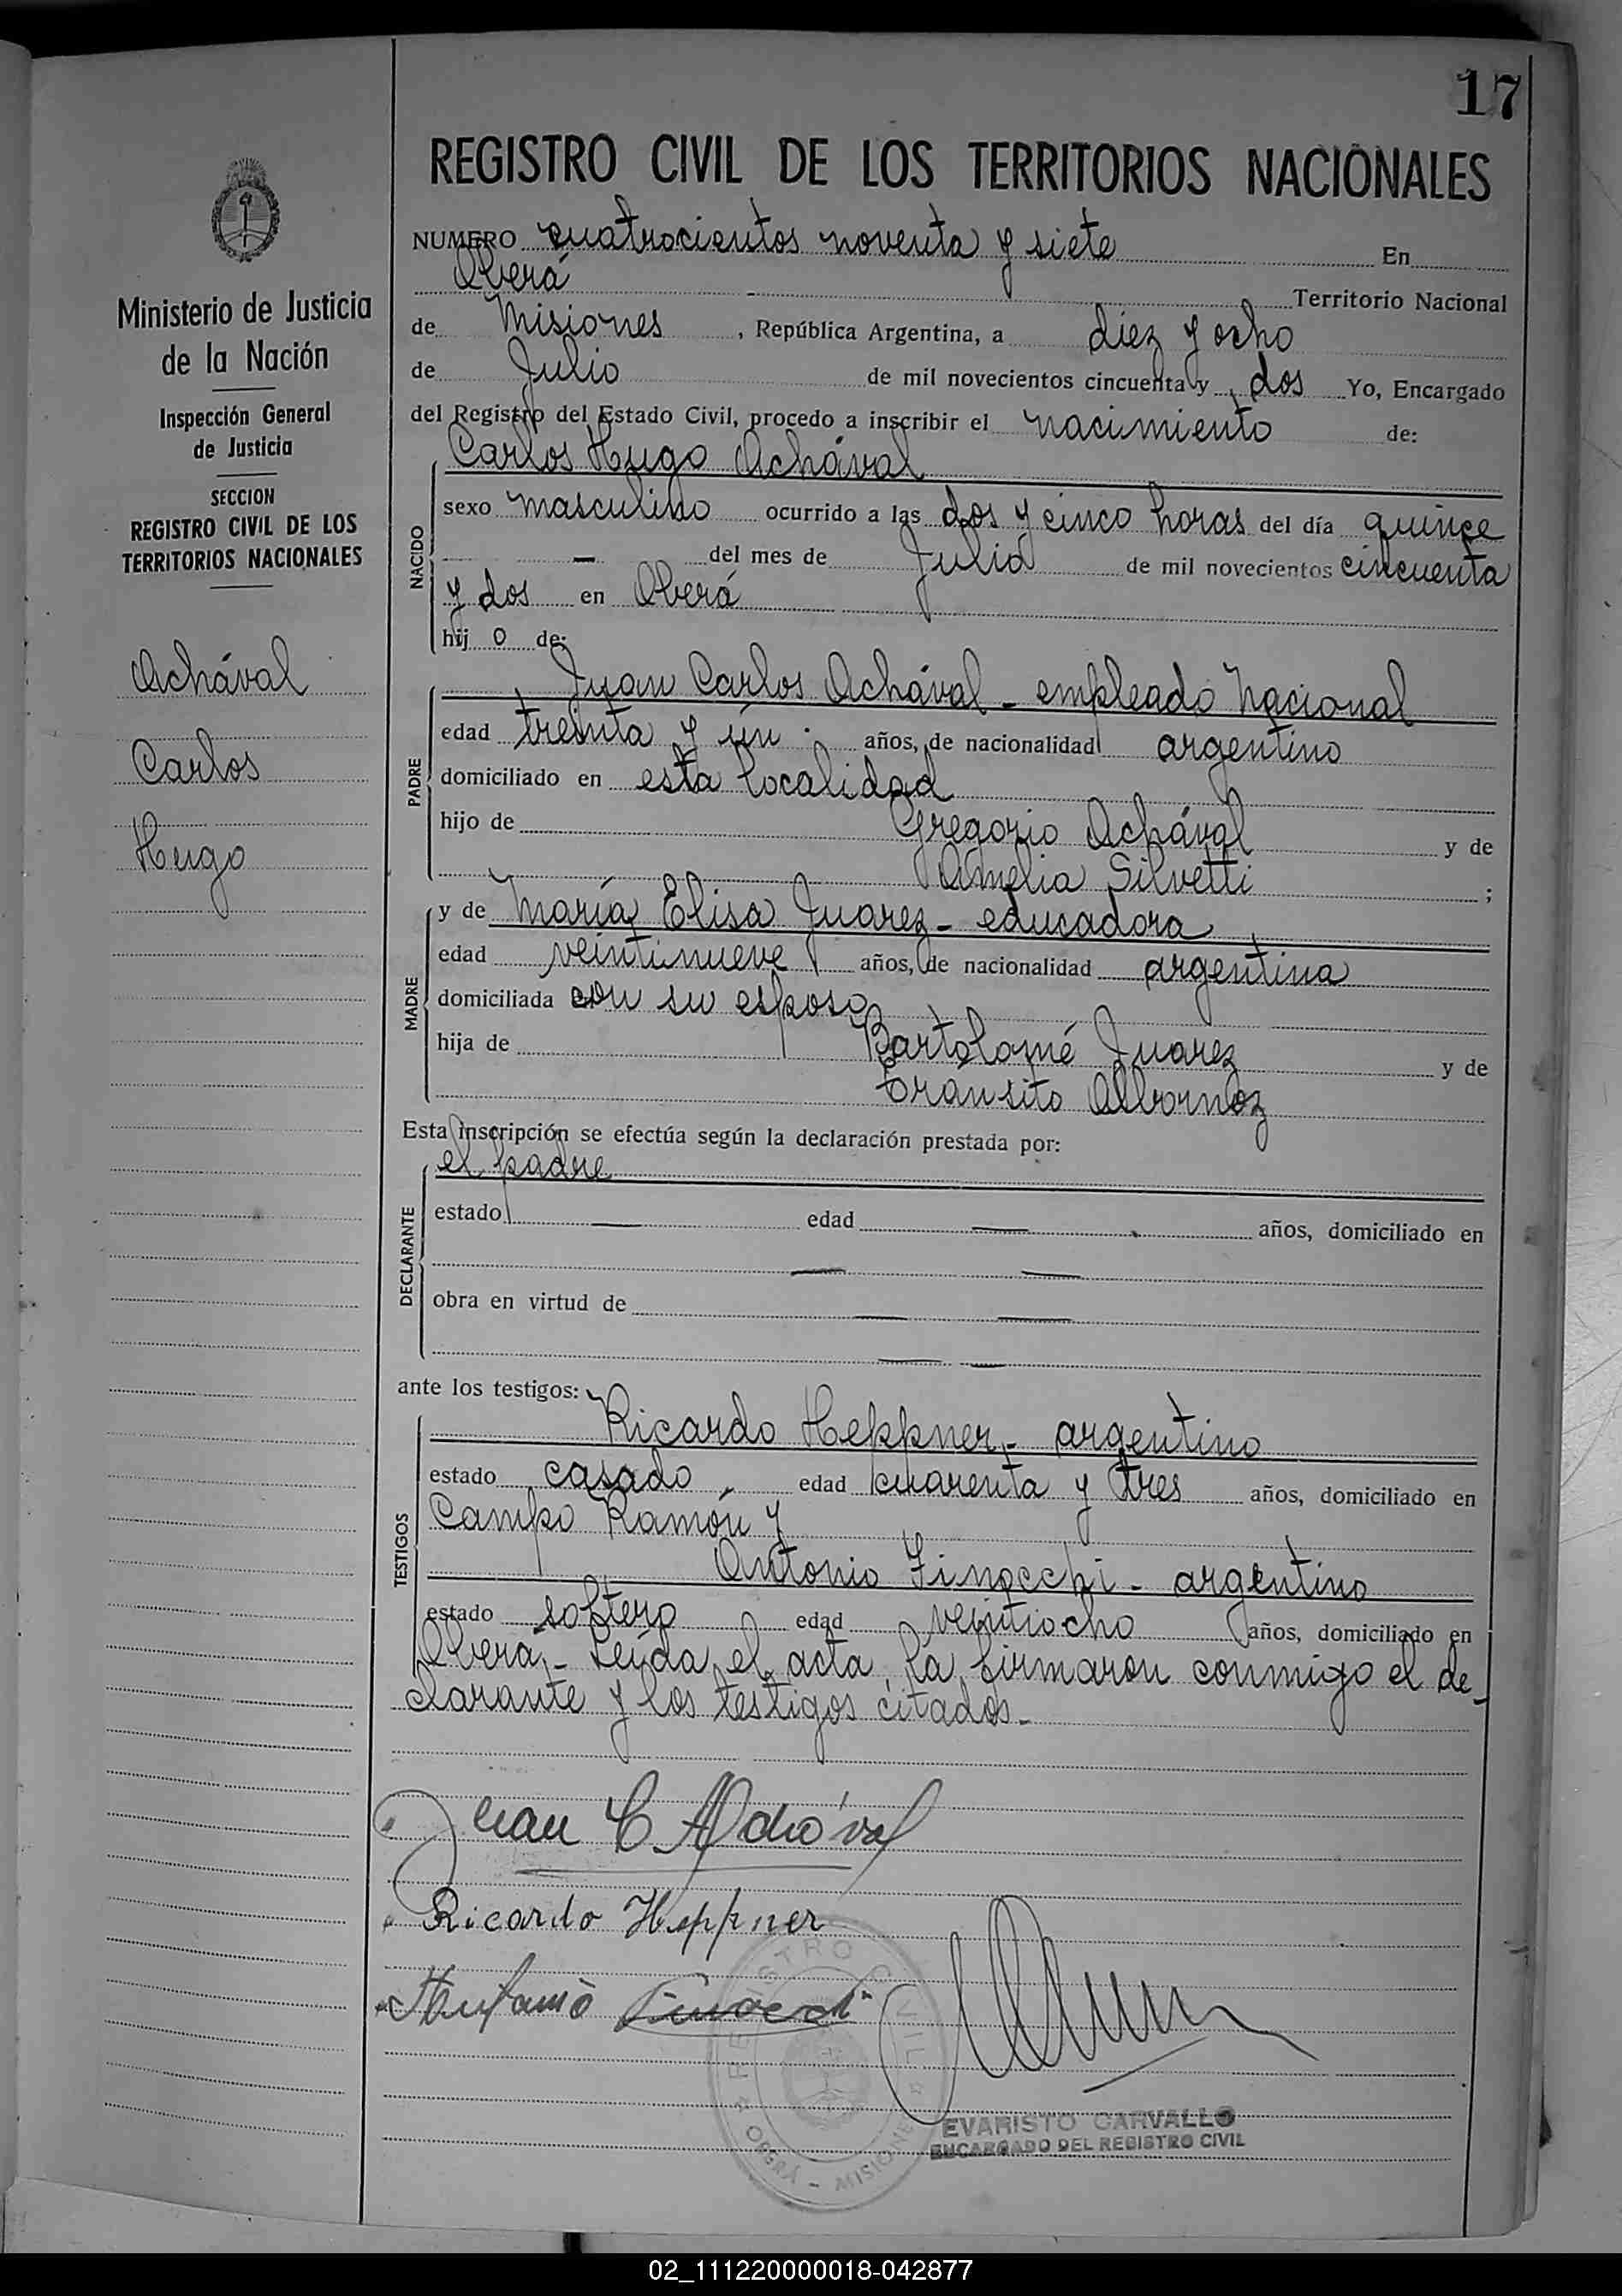 17
REGISTRO CIVIL DE LOS TERRITORIOS NACIONALES
Ministerio de Justicia
de la Nación
Inspección General
de Justicia
SECCION
REGISTRO CIVIL DE LOS
TERRITORIOS NACIONALES
Achával
Carlos
Hugo
NUMERO cuatrocientos noventa y siete En
Oberá Territorio Nacional
de Misiones, República Argentina, a diez y ocho
de Julio de mil novecientos cincuenta y dos Yo, Encargado
del Registro del Estado Civil, procedo a inscribir el nacimiento de:
NACIDO
Carlos Hugo Achával
sexo masculino ocurrido a las dos y cinco horas del día quince
— del mes de Julio de mil novecientos cincuenta
y dos en Oberá
hijo de:
PADRE
Juan Carlos Achával - empleado Nacional
edad treinta y ún años, de nacionalidad argentino
domiciliado en esta localidad
hijo de Gregorio Achával y de
Amelia Silvetti ;
MADRE
y de María Elisa Juarez - educadora
edad veintinueve años, de nacionalidad argentina
domiciliada con su esposo
hija de Bartolomé Juarez y de
Tránsito Albornoz
Esta inscripción se efectúa según la declaración prestada por:
DECLARANTE
el padre
estado — edad — años, domiciliado en
— —
obra en virtud de — —
— —
ante los testigos:
TESTIGOS
Ricardo Heppner - argentino
estado casado edad cuarenta y tres años, domiciliado en
Campo Ramón y
Antonio Finocchi - argentino
estado soltero edad veintiocho años, domiciliado en
Oberá - Leída el acta la firmaron conmigo el de-
clarante y los testigos citados -
Juan C Achával
Ricardo Heppner
REGISTRO CIVIL
OBERÁ - MISIONES
EVARISTO CARVALLO
ENCARGADO DEL REGISTRO CIVIL
02_111220000018-042877